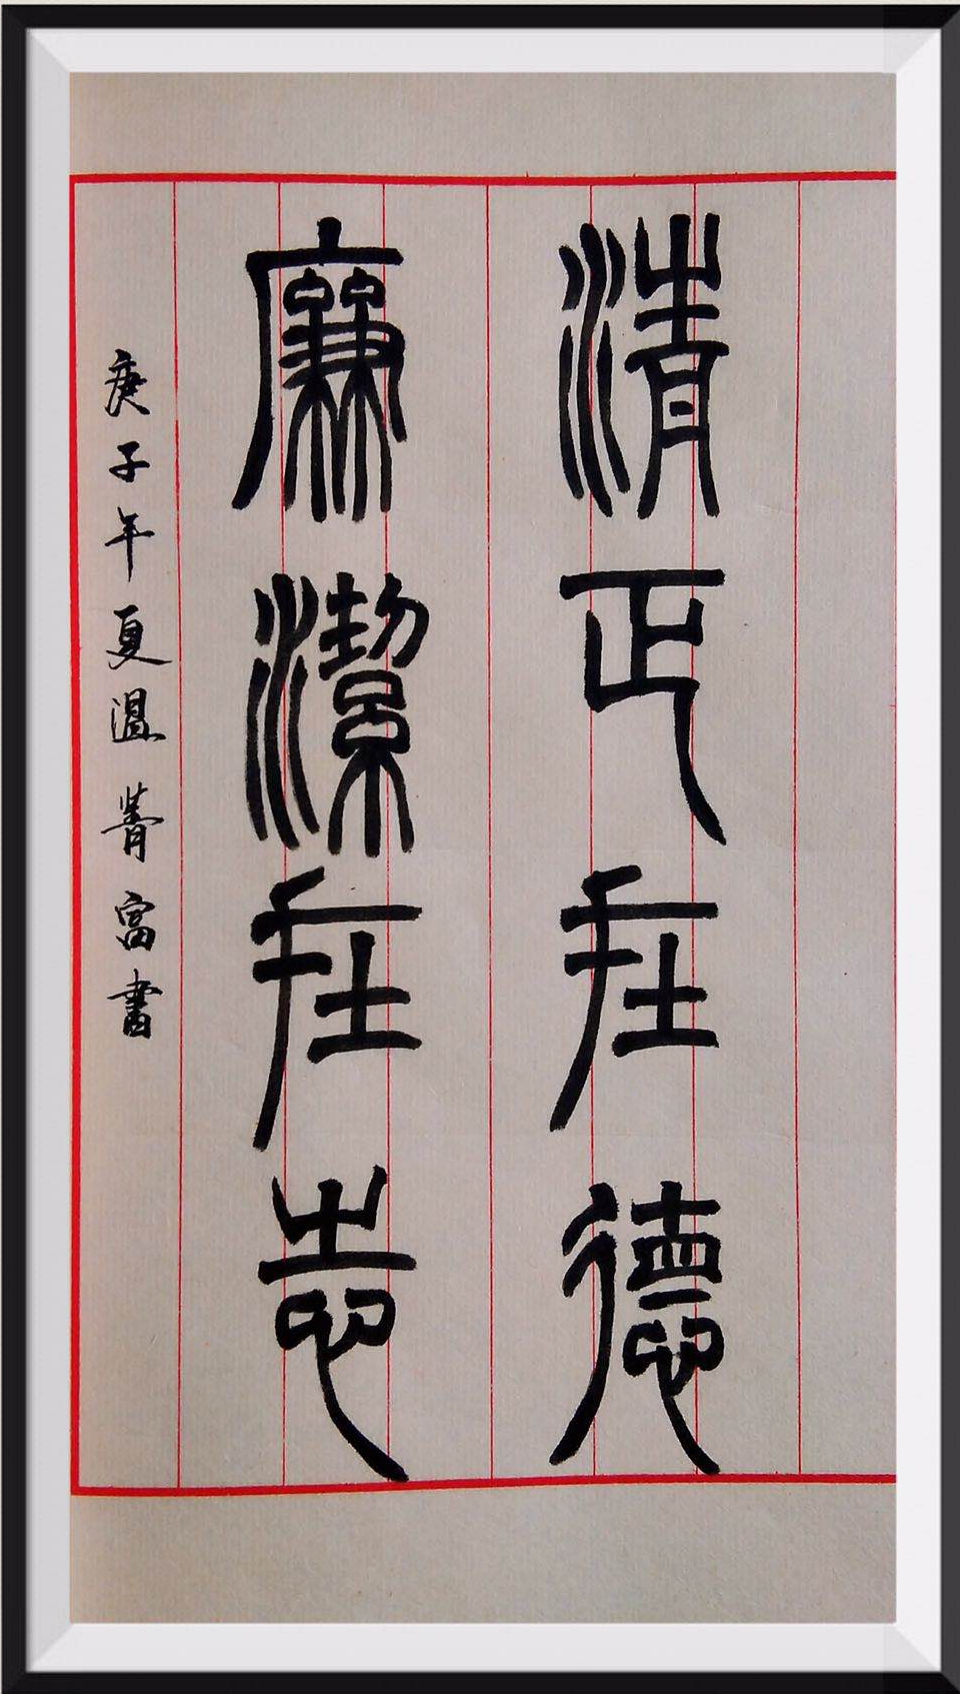 清正在德
廉潔在志
庚子年夏温菁富書